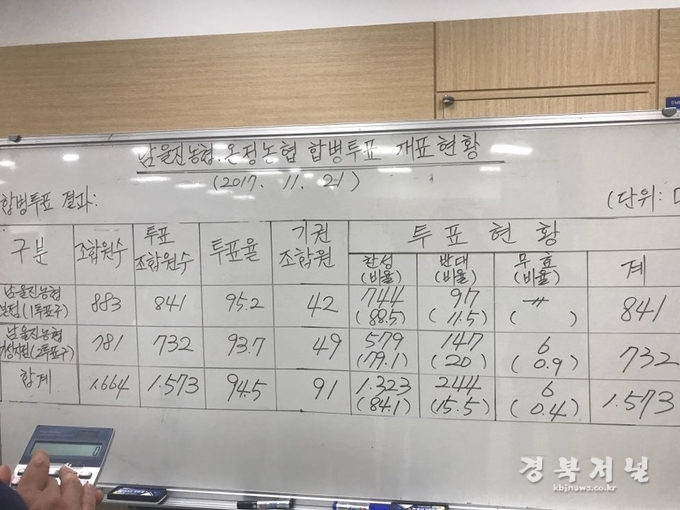 남울진농협.온정농협 합병투표 개표현황
(2017. 11. 21)
합병투표 결과:
(단위:
구분 조합원수 투표 조합원수 투표율 기권 조합원 투표현황
찬성 (비율) 반대 (비율) 무효 (비율) 계
남울진농협 본점(1투표구) 883 841 95.2 42 744 (88.5) 97 (11.5) ( ) 841
남울진농협 (2투표구) 781 732 93.7 49 579 (79.1) 147 (20) 6 (0.9) 732
합계 1.664 1.573 94.5 91 1.323 (84.1) 244 (15.5) 6 (0.4) 1.573
경북저널
kbjnews.co.kr